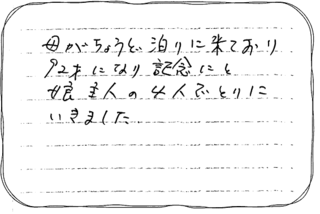 母がちょうど泊りに来ており
92才になり記念にと
娘主人の4人でとりに
いきました